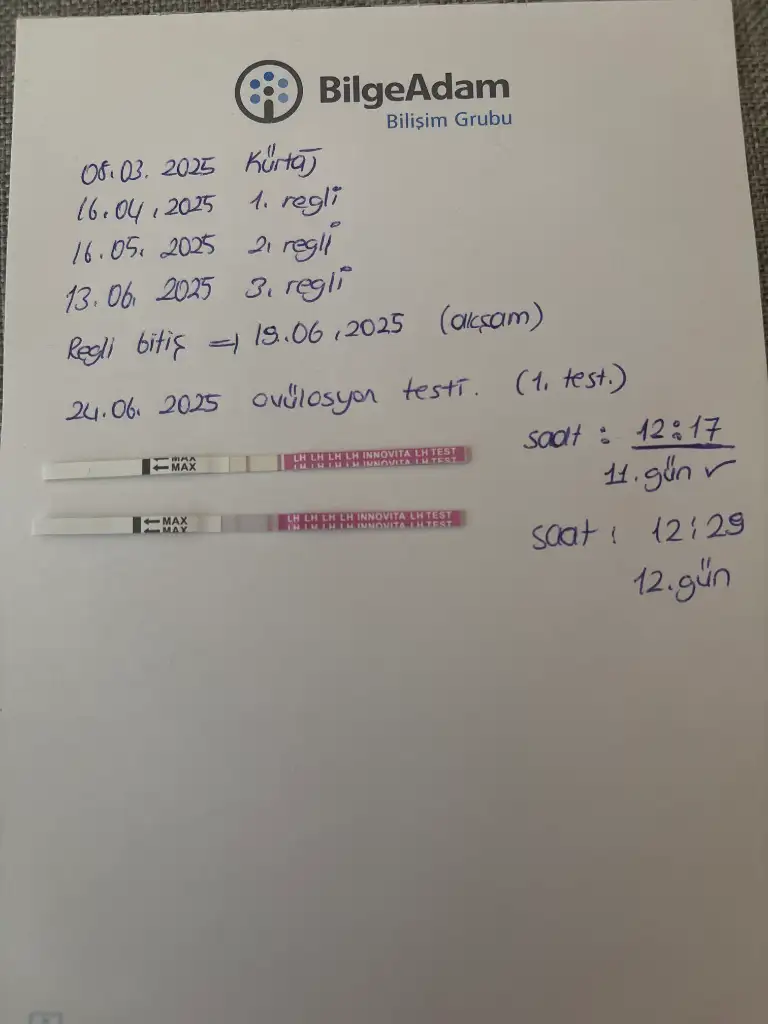 BilgeAdam
Bilişim Grubu
08.03.2025 Kürtaj
16.04.2025 1. regli
16.05.2025 2. regli
13.06.2025 3. regli
Regli bitiş => 19.06.2025 (akşam)
24.06.2025 ovülosyon testi. (1. test.)
saat : 12:17
11.gün ✓
MAX
← MAX
LH LH LH LH INNOVITA LH TEST
LH LH LH LH INNOVITA LH TEST
saat : 12:29
12.gün
← MAX
← MAX
LH LH LH LH INNOVITA LH TEST
LH LH LH LH INNOVITA LH TEST